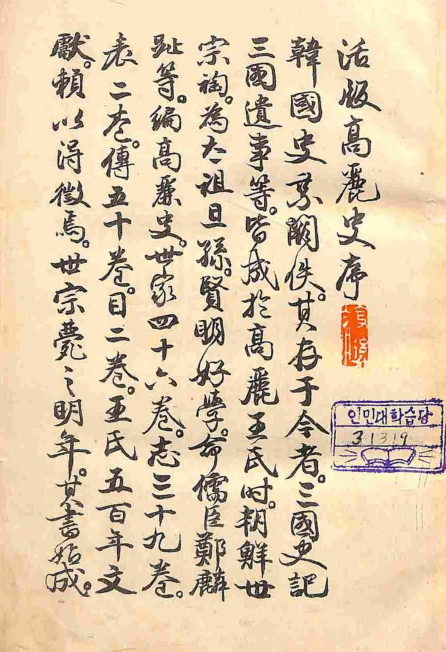 活版高麗史序
韓國史闕佚。其存于今者。三國史記
三國遺事等。皆成於高麗王氏時。朝鮮世
宗祹。為太祖旦孫。賢明好學。命儒臣鄭麟
趾等。編高麗史。世家四十六卷。志三十九卷。
表二卷。傳五十卷。目二卷。王氏五百年文
獻。賴以得徵焉。世宗薨之明年。其書始成。
인민대학습당
31319